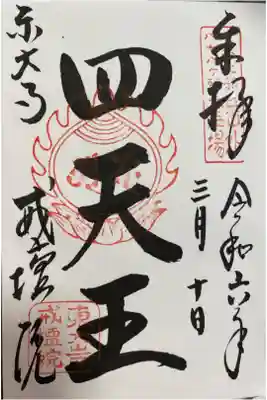 奉拝
令和六年
三月十日
四天王
東大寺
戒壇院
東大寺
戒壇院